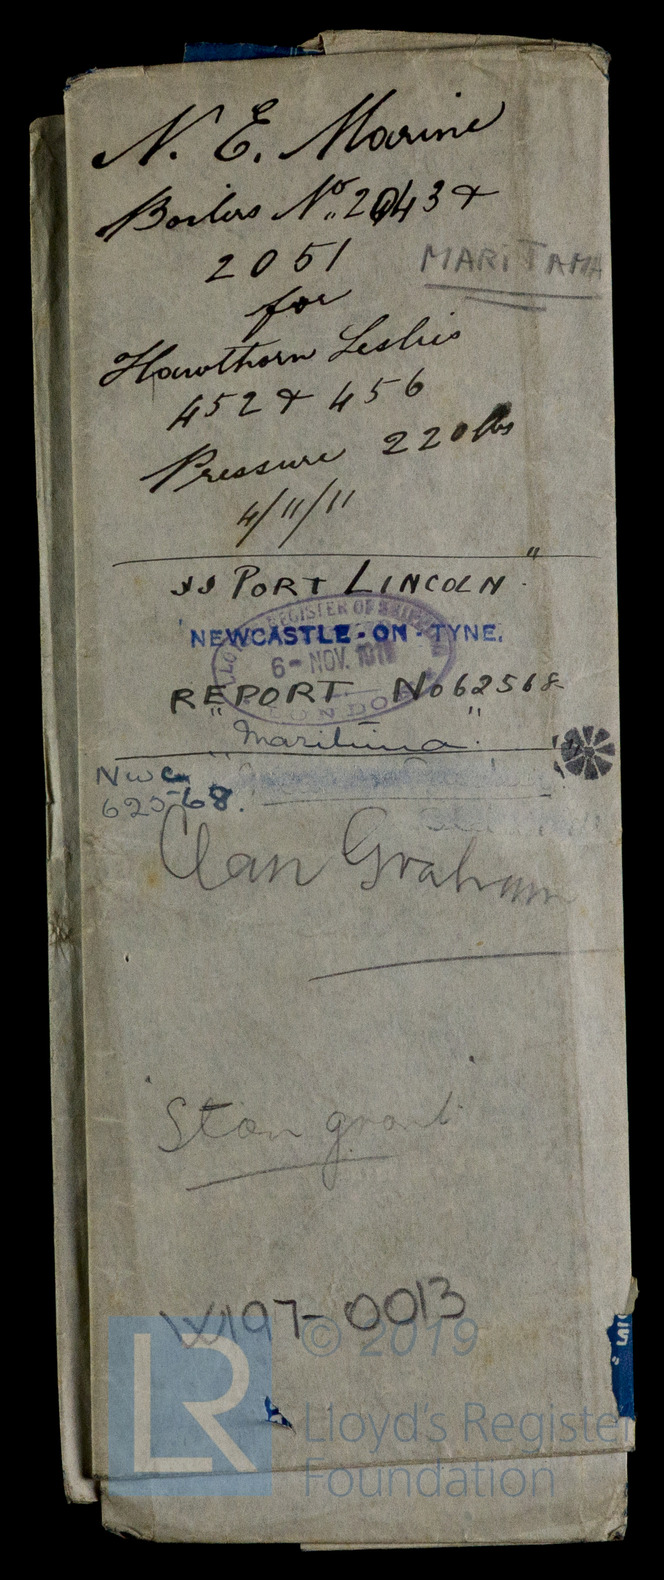 N. E. Marine
Boilers No. 2043 &
2051
MARITAMA
for
Hawthorn Leslies
452 & 456
Pressure 220 lbs
4/11/11
SS PORT LINCOLN
LLOYD'S REGISTER OF SHIPPING
NEWCASTLE-ON-TYNE.
6-NOV. 1911
LONDON
REPORT No 62568
"Maritima"
Nwc
62568.
Clan Graham
Stan grant
W197-0013
© 2019
LR
Lloyd's Register
Foundation